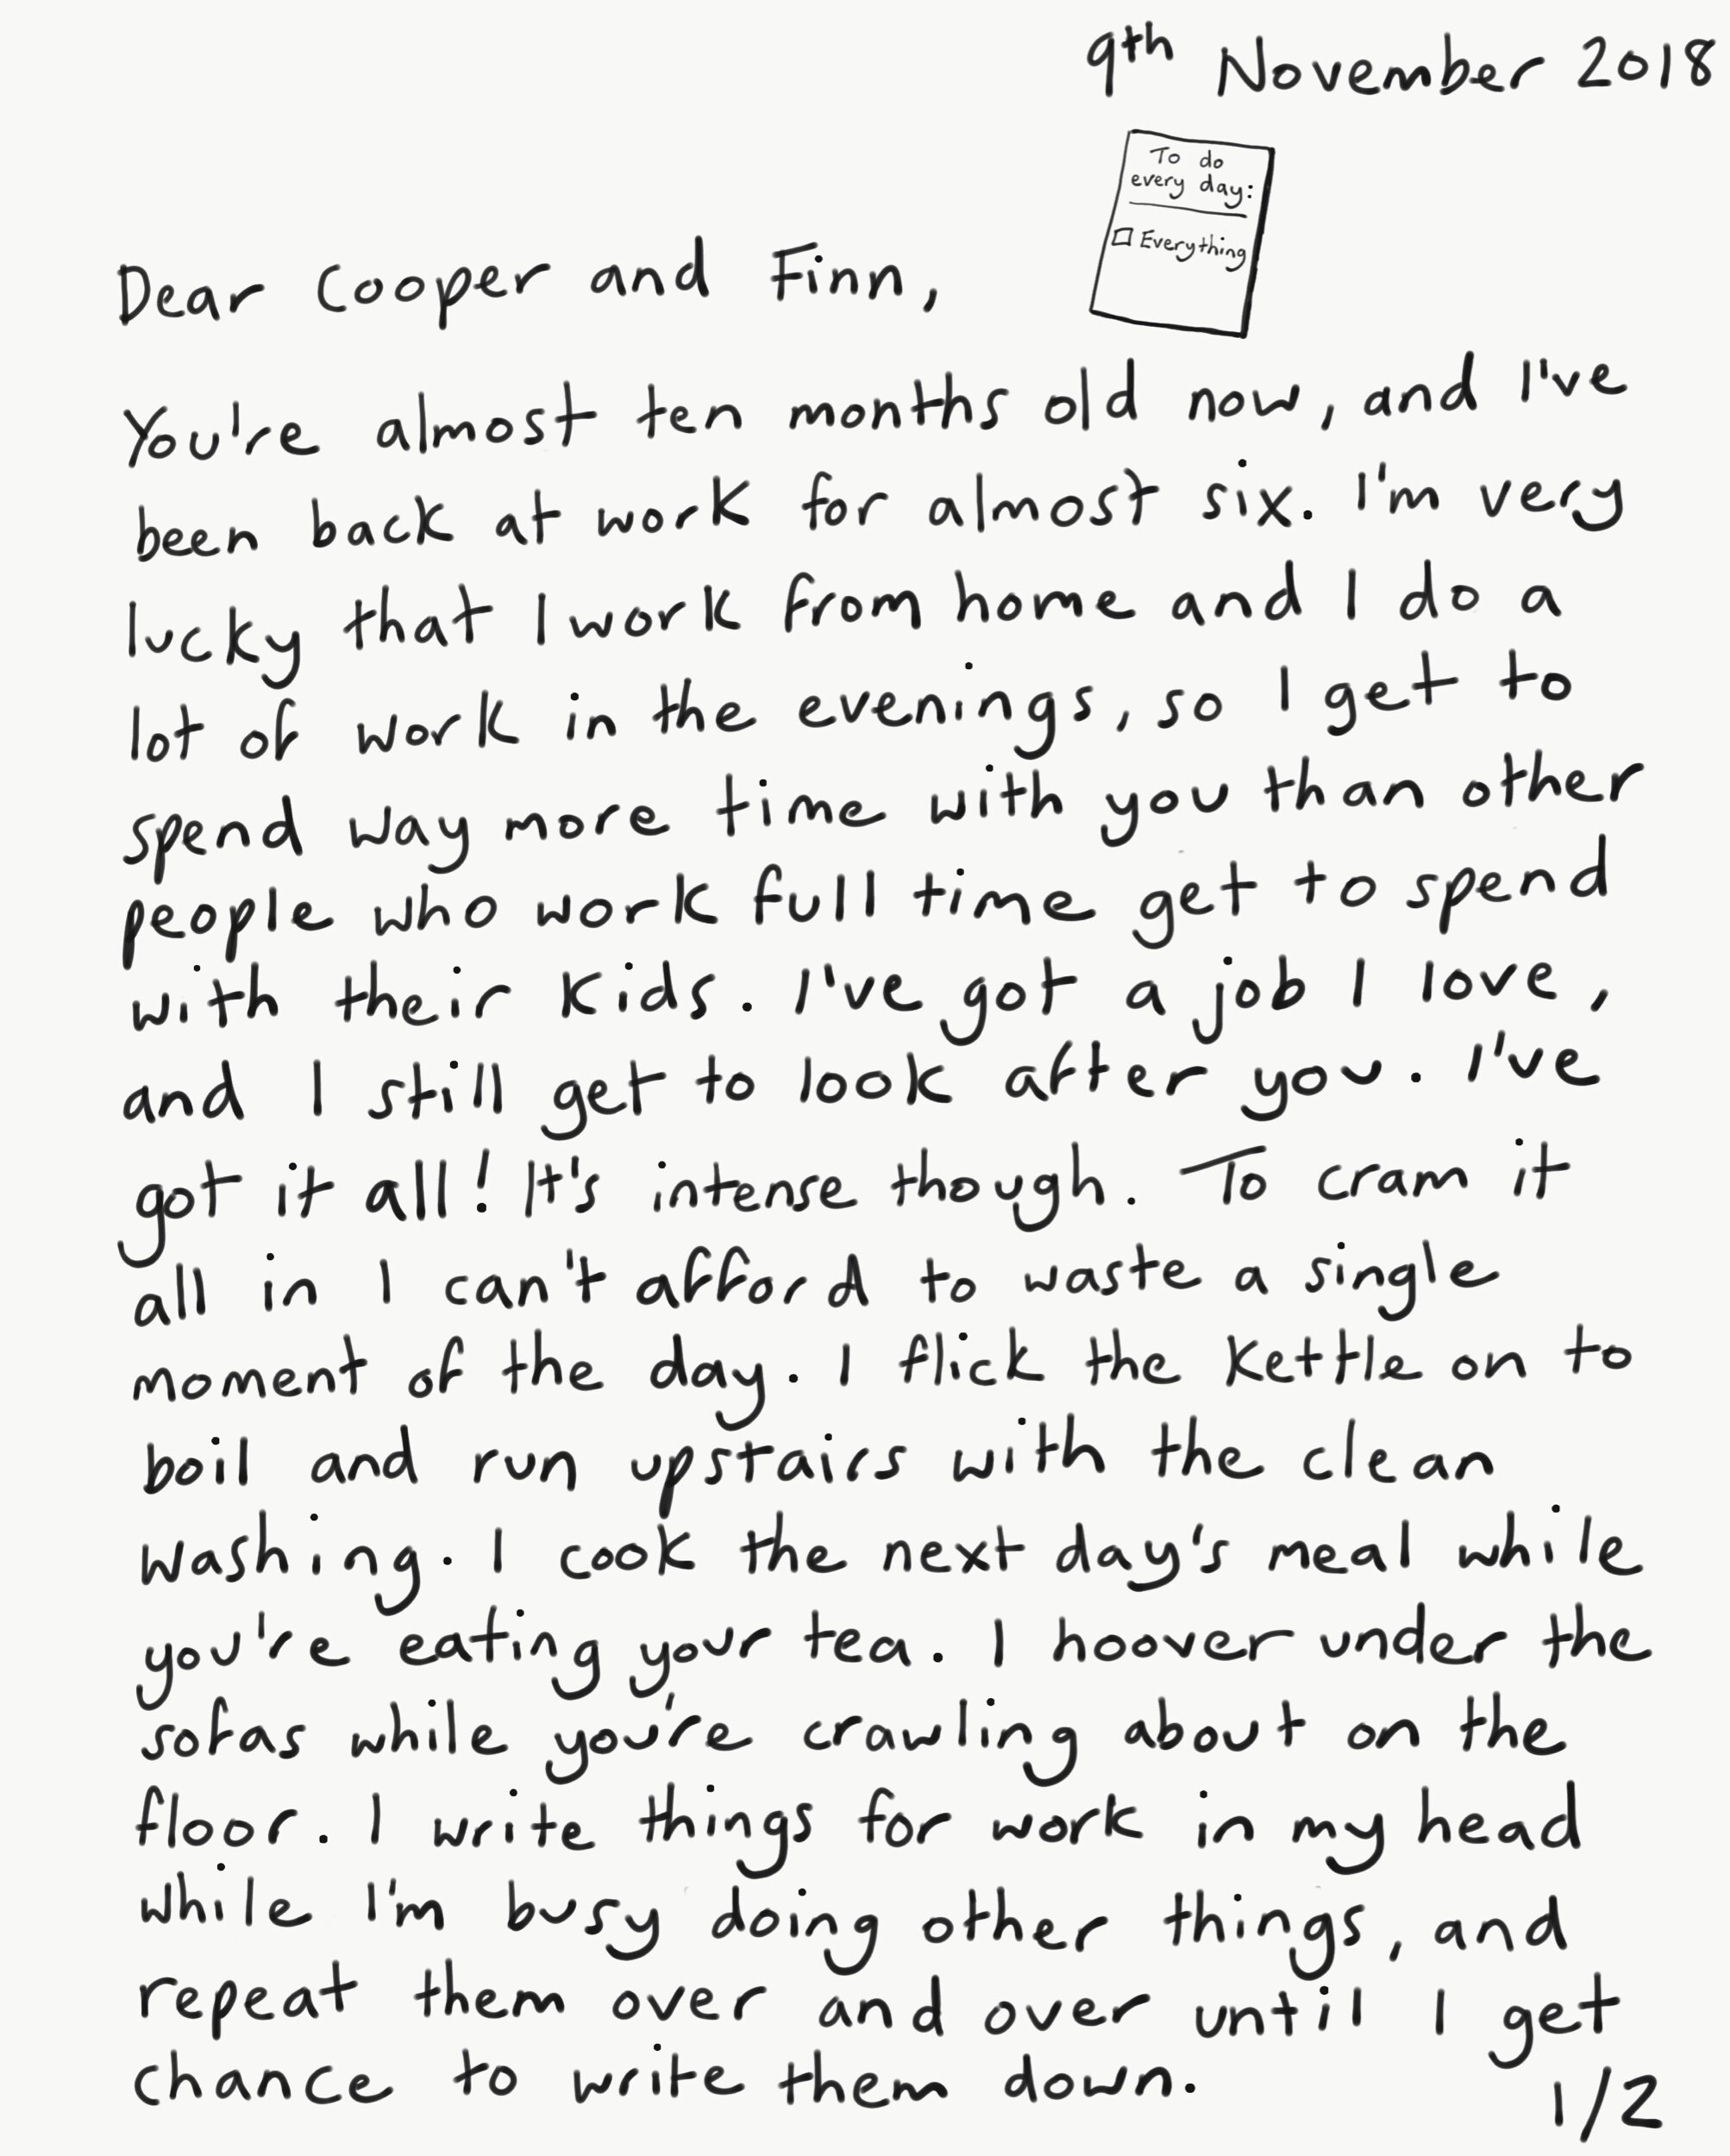 9th November 2018
To do
every day:
Everything
Dear Cooper and Finn,
You're almost ten months old now, and I've
been back at work for almost six. I'm very
lucky that I work from home and I do a
lot of work in the evenings, so I get to
spend way more time with you than other
people who work full time get to spend
with their kids. I've got a job I love,
and I still get to look after you. I've
got it all! It's intense though. To cram it
all in I can't afford to waste a single
moment of the day. I flick the kettle on to
boil and run upstairs with the clean
washing. I cook the next day's meal while
you're eating your tea. I hoover under the
sofas while you're crawling about on the
floor. I write things for work in my head
while I'm busy doing other things, and
repeat them over and over until I get
chance to write them down.
1/2